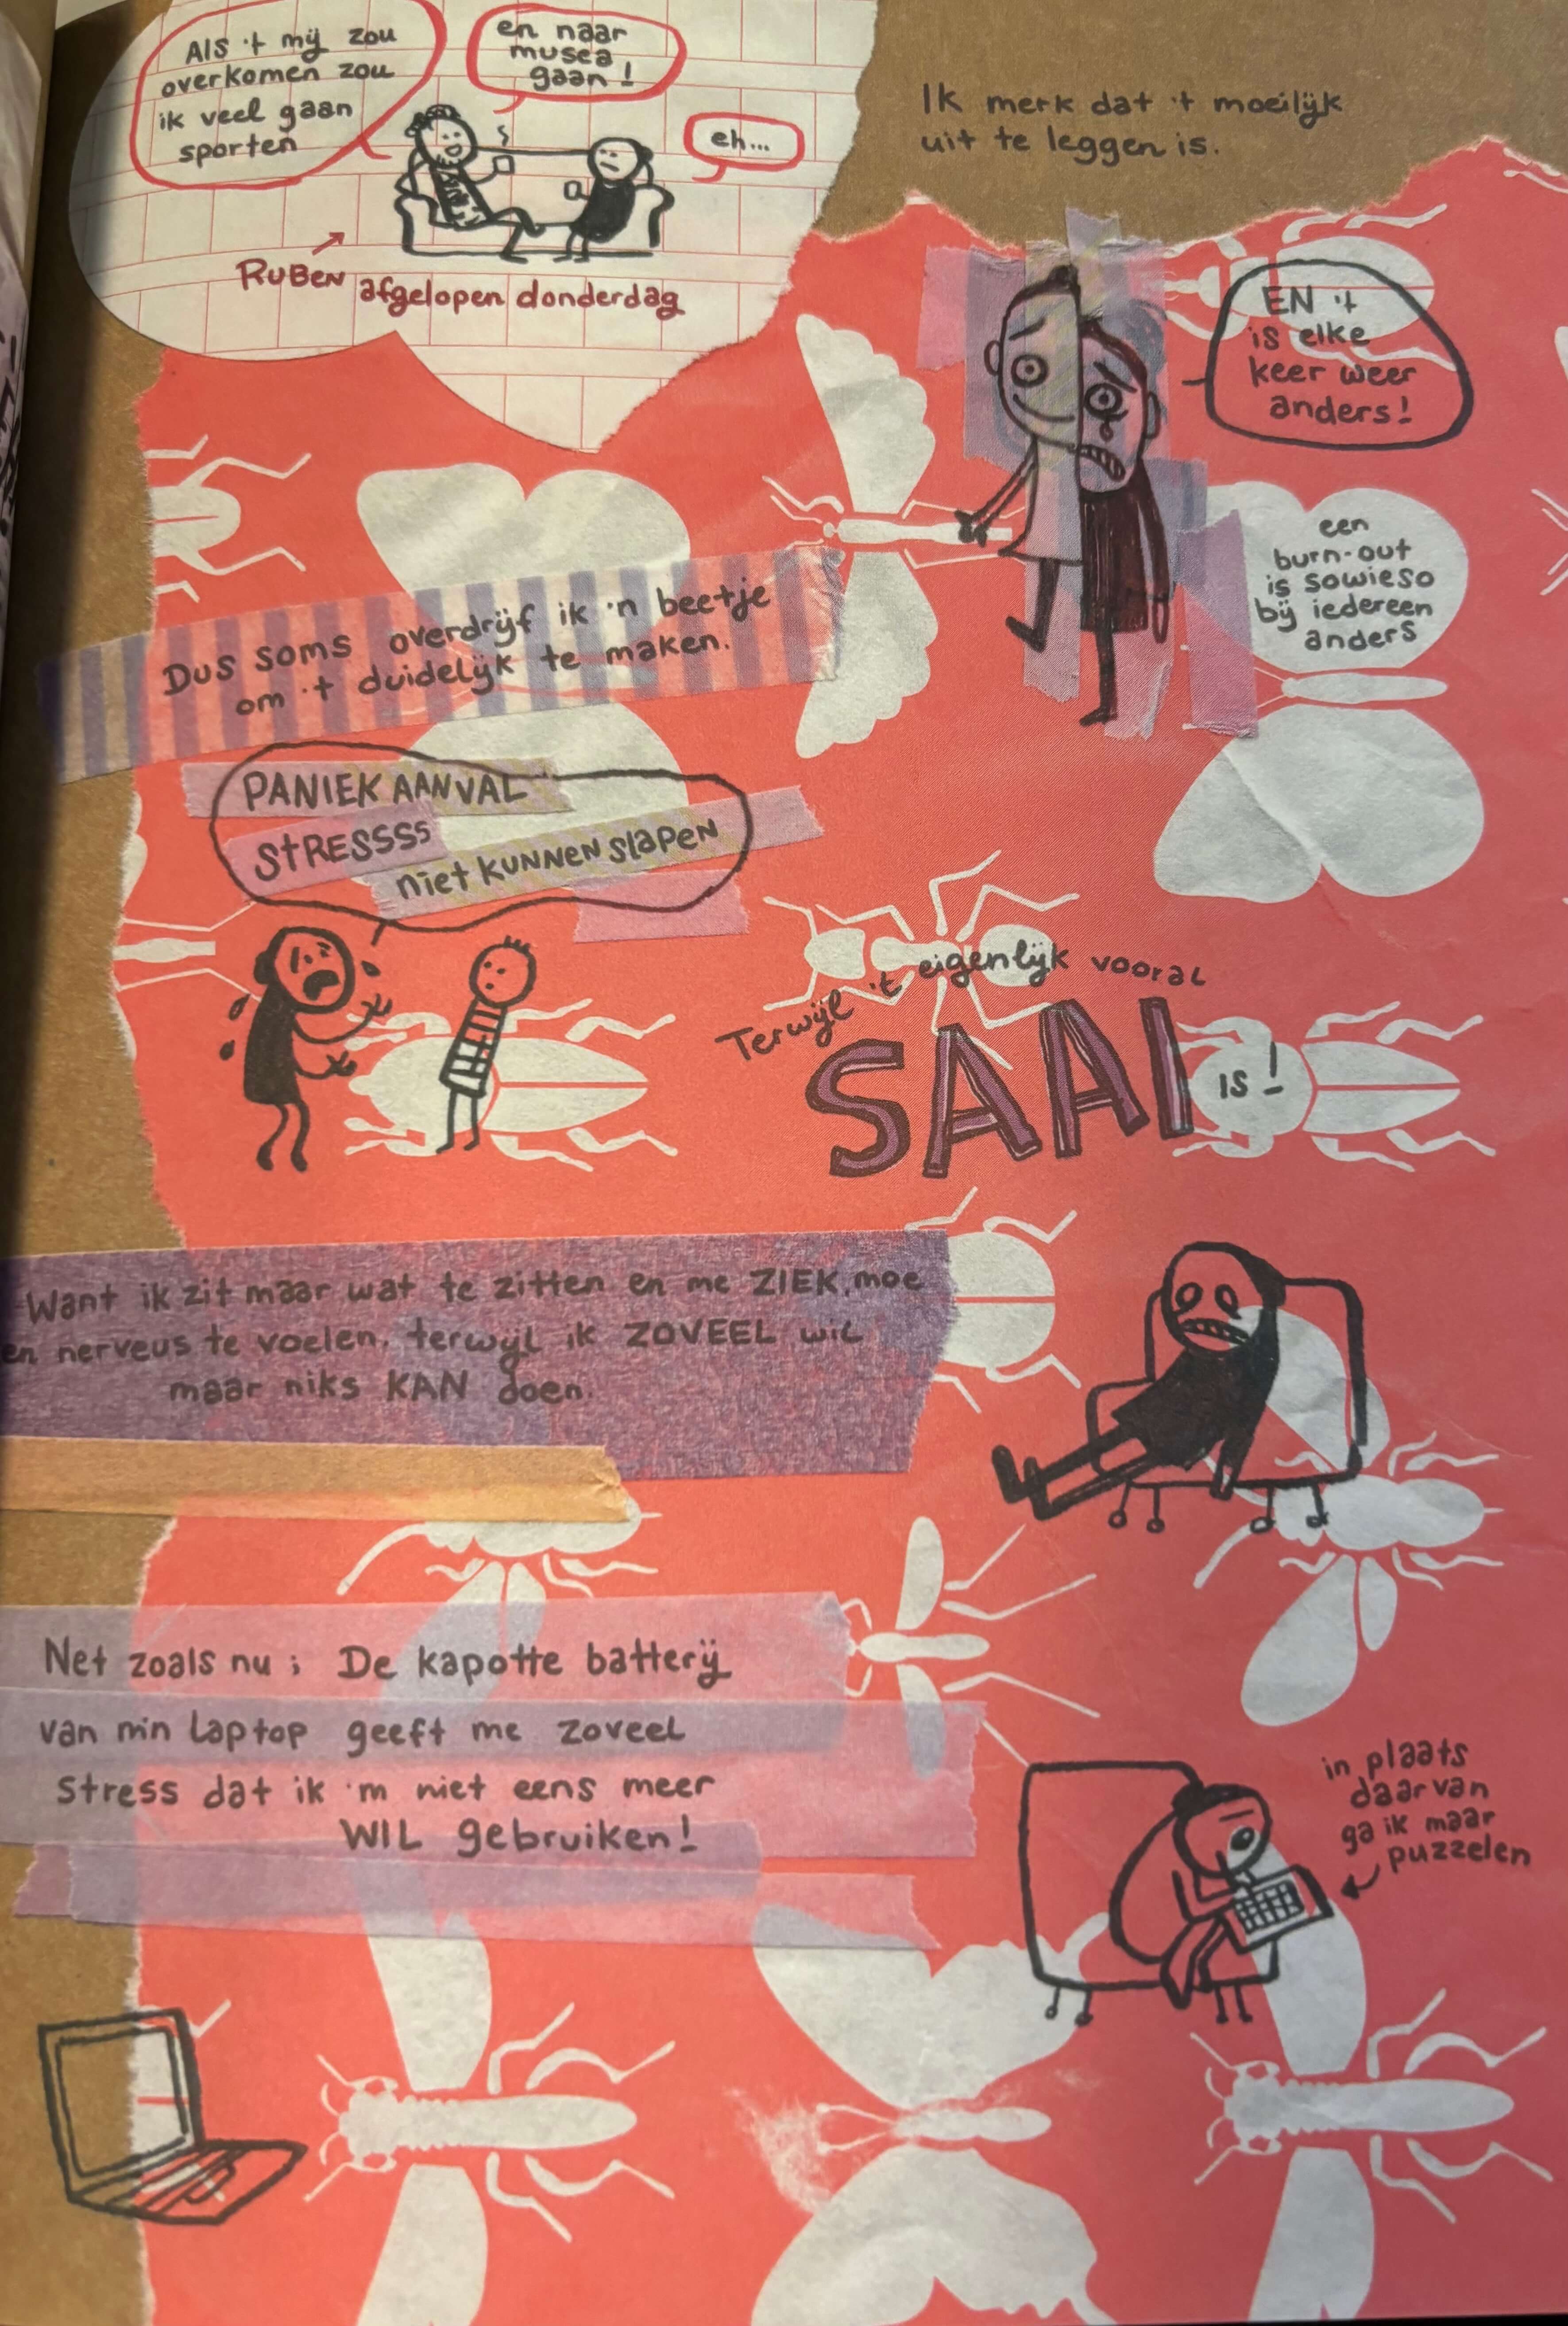 Als 't mij zou
overkomen zou
ik veel gaan
sporten
en naar
musea
gaan!
eh...
RUBEN afgelopen donderdag
Ik merk dat 't moeilijk
uit te leggen is.
EN 't
is elke
keer weer
anders!
een
burn-out
is sowieso
bij iedereen
anders
Dus soms overdrijf ik 'n beetje
om 't duidelijk te maken.
PANIEK AANVAL
STRESSSS
niet KUNNEN slapen
Terwijl 't eigenlijk vooral
SAAI
is!
Want ik zit maar wat te zitten en me ZIEK, moe
en nerveus te voelen. terwijl ik ZOVEEL wil
maar niks KAN doen.
Net zoals nu; De kapotte batterij
van m'n laptop geeft me zoveel
stress dat ik 'm niet eens meer
WIL gebruiken!
in plaats
daar van
ga ik maar
puzzelen